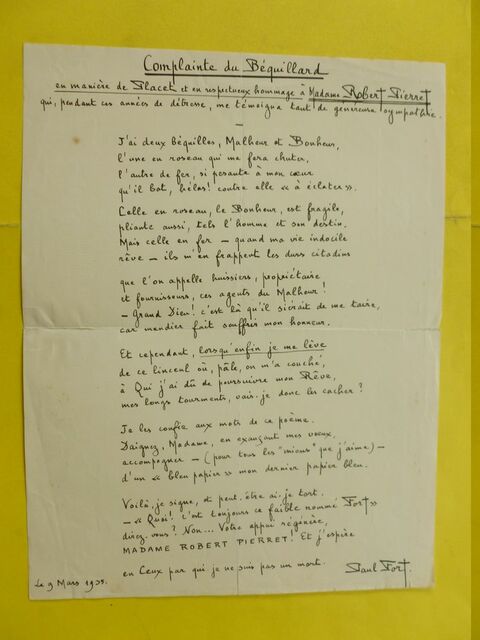 Complainte du Béquillard
en manière de Placet et en respectueux hommage à Madame Robert Pierret
qui, pendant ces années de détresse, me témoigna tant de généreuse sympathie.
J'ai deux béquilles, Malheur et Bonheur,
l'une en roseau qui me fera chuter,
l'autre de fer, si pesante à mon cœur
qu'il bat, hélas! contre elle « à éclater ».
Celle en roseau, le Bonheur, est fragile,
pliante aussi, tels l'homme et son destin.
Mais celle en fer – quand ma vie indocile
rêve – ils m'en frappent les durs citadins
que l'on appelle huissiers, propriétaire
et fournisseurs, ces agents du Malheur!
– Grand Dieu! c'est là qu'il siérait de me taire,
car mendier fait souffrir mon honneur.
Et cependant, lorsqu'enfin je me lève
de ce linceul où, pâle, on m'a couché,
à Qui j'ai dû de poursuivre mon Rêve,
mes longs tourments, vais-je donc les cacher?
Je les confie aux mots de ce poème.
Daignez, Madame, en exauçant mes vœux,
accompagner – (pour tous les "miens" que j'aime) –
d'un « bleu papier » mon dernier papier bleu.
Voilà, je signe, et peut-être ai-je tort.
– « Quoi! c'est toujours ce faible nommé Fort »
direz-vous? Non... Votre appui régénère,
MADAME ROBERT PIERRET! Et j'espère
en Ceux par qui je ne suis pas un mort.
Le 9 Mars 1935.
Paul Fort.